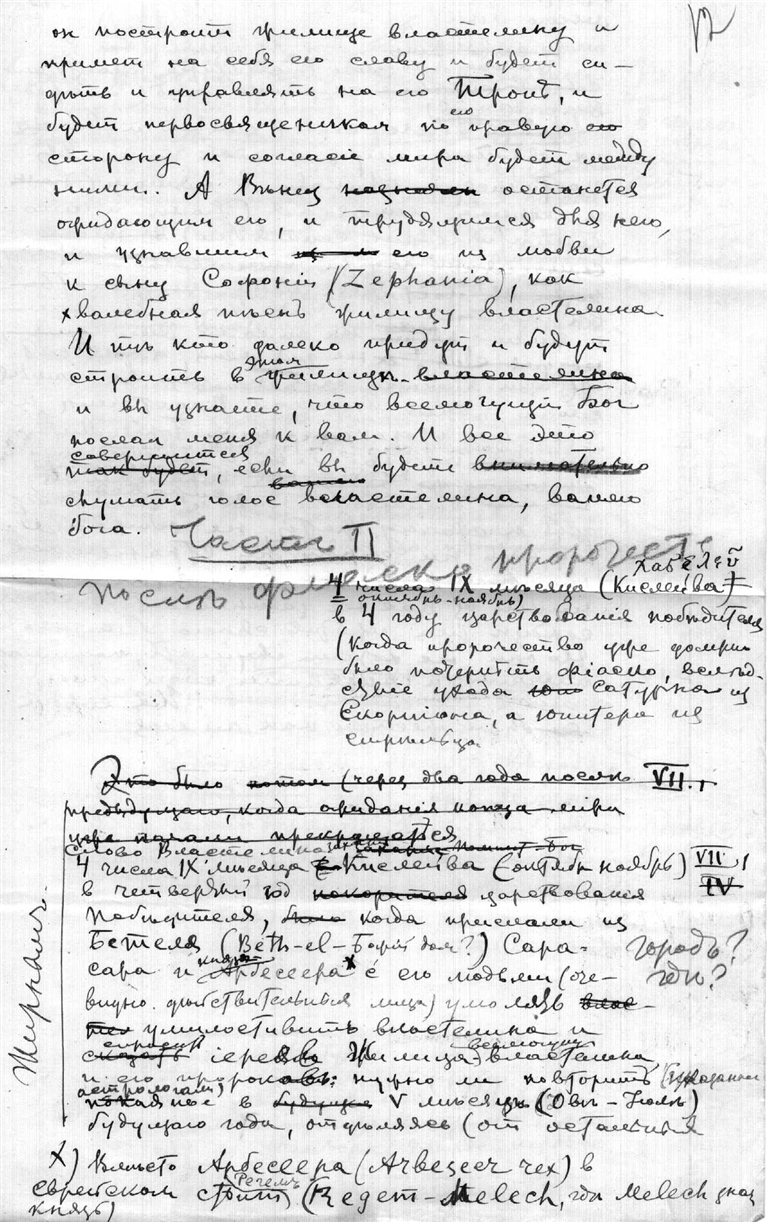 12
он построитъ жилище властелину и
приметъ на себя его славу и будетъ си-
дѣть и управлять на его Тронѣ, и
будетъ первосвященникомъ по его правую его
сторону и согласіе мира будетъ между
ними. А Вѣнец останется
ожидающим его, и трудящимся для него,
и узнавшим его из любви
к сыну Софоніи (Zephania), как
хвалебная пѣснь жилищу властелина
И тѣ кто далеко придут и будут
строить в этом жилищѣ властелина
и вы узнаете, что всемогущій Бог
послал меня к вам. И все это
совершится
так будет, если вы будете внимательно
слушать голос властелина, вашего
бога.
Часть II
послѣ фіаско пророчеств
4 числа IX мѣсяца (Кислейва)
октябрь-ноябрь)
в 4 году царствованія побѣдителя
(когда пророчество уже должно
было потерпѣть фіаско, вслѣд-
ствіе ухода Сатурна из
Скорпіона, а Юпитера из
стрѣльца
Это было потом (через два года послѣ VII.1
предыдущаго, когда ожиданія конца міра
уже начали прекращаться
Слово Властелина
4 числа IX мѣсяца Кислейва (октябрь ноябрь) VII 1
IV
в четвертый год царствованія
Побѣдителя, когда прислали из
Бетеля (Beth-el-Божій дом?) Сара- городъ?
сара и князя Арбесера x с его людьми (оче- гдѣ?
видно дѣйствительныя лица) умолять
умилостивить властелина и
спросить іереев Жилища властелина
и его пророков: нужно ли повторить
астрологами)
в V мѣсяцѣ (Овъ-Іюль)
будущаго года, отдѣляясь (от остальныя
Жирнымъ
x) Вмѣсто Арбесера (Арбесер чех) в
еврейском стоит Регемъ (Regem-Melech, гдѣ Melech знач
князь)